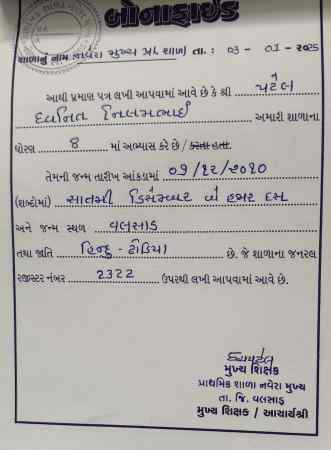 બોનાફાઈડ
શાળાનું નામ નવેરા મુખ્ય પ્રા. શાળા તા. : ૦૩ - ૦૧ - ૨૦૨૫
આથી પ્રમાણ પત્ર લખી આપવામાં આવે છે કે શ્રી પટેલ
દેવનિત નિલમભાઈ અમારી શાળાના
ધોરણ 8 માં અભ્યાસ કરે છે / કરતા હતા.
તેમની જન્મ તારીખ આંકડામાં ૦૭/૧૨/૨૦૧૦
(શબ્દોમાં) સાતમી ડિસેમ્બર બે હજાર દસ
અને જન્મ સ્થળ વલસાડ
તથા જાતિ હિન્દુ - ઢોડિયા છે. જે શાળાના જનરલ
રજીસ્ટર નંબર 2322 ઉપરથી લખી આપવામાં આવે છે.
મુખ્ય શિક્ષક
પ્રાથમિક શાળા નવેરા મુખ્ય
તા. જિ. વલસાડ
મુખ્ય શિક્ષક / આચાર્યશ્રી